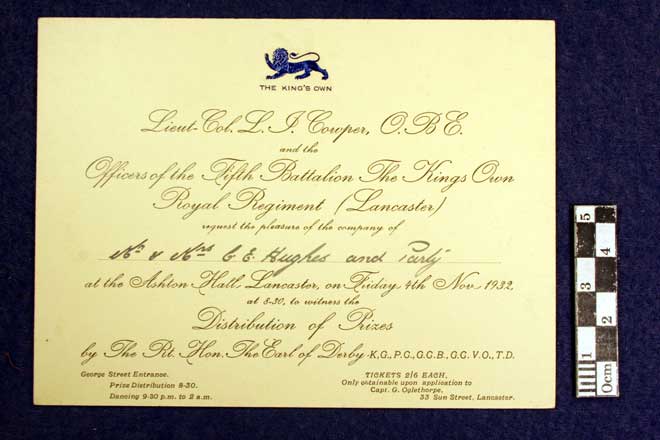 THE KING'S OWN
Lieut-Col. L. I. Cowper, O.B.E.
and the
Officers of the Fifth Battalion The Kings Own
Royal Regiment (Lancaster)
request the pleasure of the company of
Mr & Mrs C E Hughes and Party
at the Ashton Hall, Lancaster, on Friday 4th Nov. 1932,
at 8-30, to witness the
Distribution of Prizes
by The Rt. Hon. The Earl of Derby K.G., P.C., G.C.B., G.C.V.O., T.D.
George Street Entrance.
Prize Distribution 8-30.
Dancing 9-30 p.m. to 2 a.m.
TICKETS 2/6 EACH,
Only obtainable upon application to
Capt. G. Oglethorpe,
33 Sun Street, Lancaster.
0cm 1 2 3 4 5